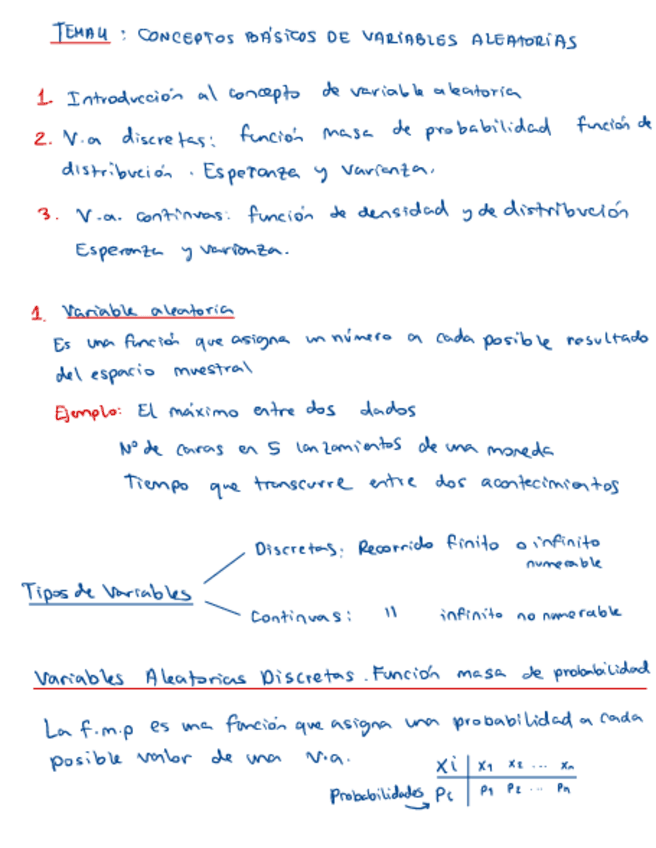 TEMA 4 : CONCEPTOS BÁSICOS DE VARIABLES ALEATORIAS
1. Introducción al concepto de variable aleatoria
2. V.a discretas: función masa de probabilidad función de
distribución . Esperanza y varianza.
3. V.a. continuas: función de densidad y de distribución
Esperanza y varianza.
1. Variable aleatoria
Es una función que asigna un número a cada posible resultado
del espacio muestral
Ejemplo: El máximo entre dos dados
Nº de caras en 5 lanzamientos de una moneda
Tiempo que transcurre entre dos acontecimientos
Discretas: Recorrido finito o infinito
numerable
Tipos de Variables
Continuas: " infinito no numerable
Variables Aleatorias Discretas . Función masa de probabilidad
La f.m.p es una función que asigna una probabilidad a cada
posible valor de una v.a.
xi | x1 x2 ... xn
Probabilidades pi | p1 p2 ... pn